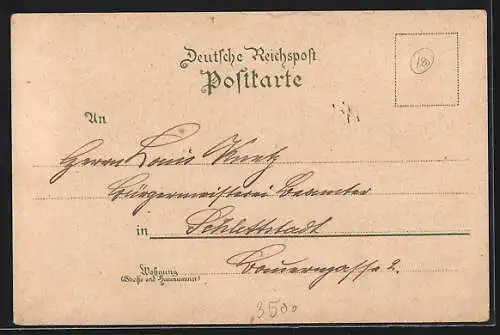 Deutsche Reichspost
Postkarte
18
An
Herrn Louis Kuntz
Bürgermeisterei Beamter
in Schlettstadt
Wohnung
(Straße und Hausnummer)
Bauerngasse 2.
3500